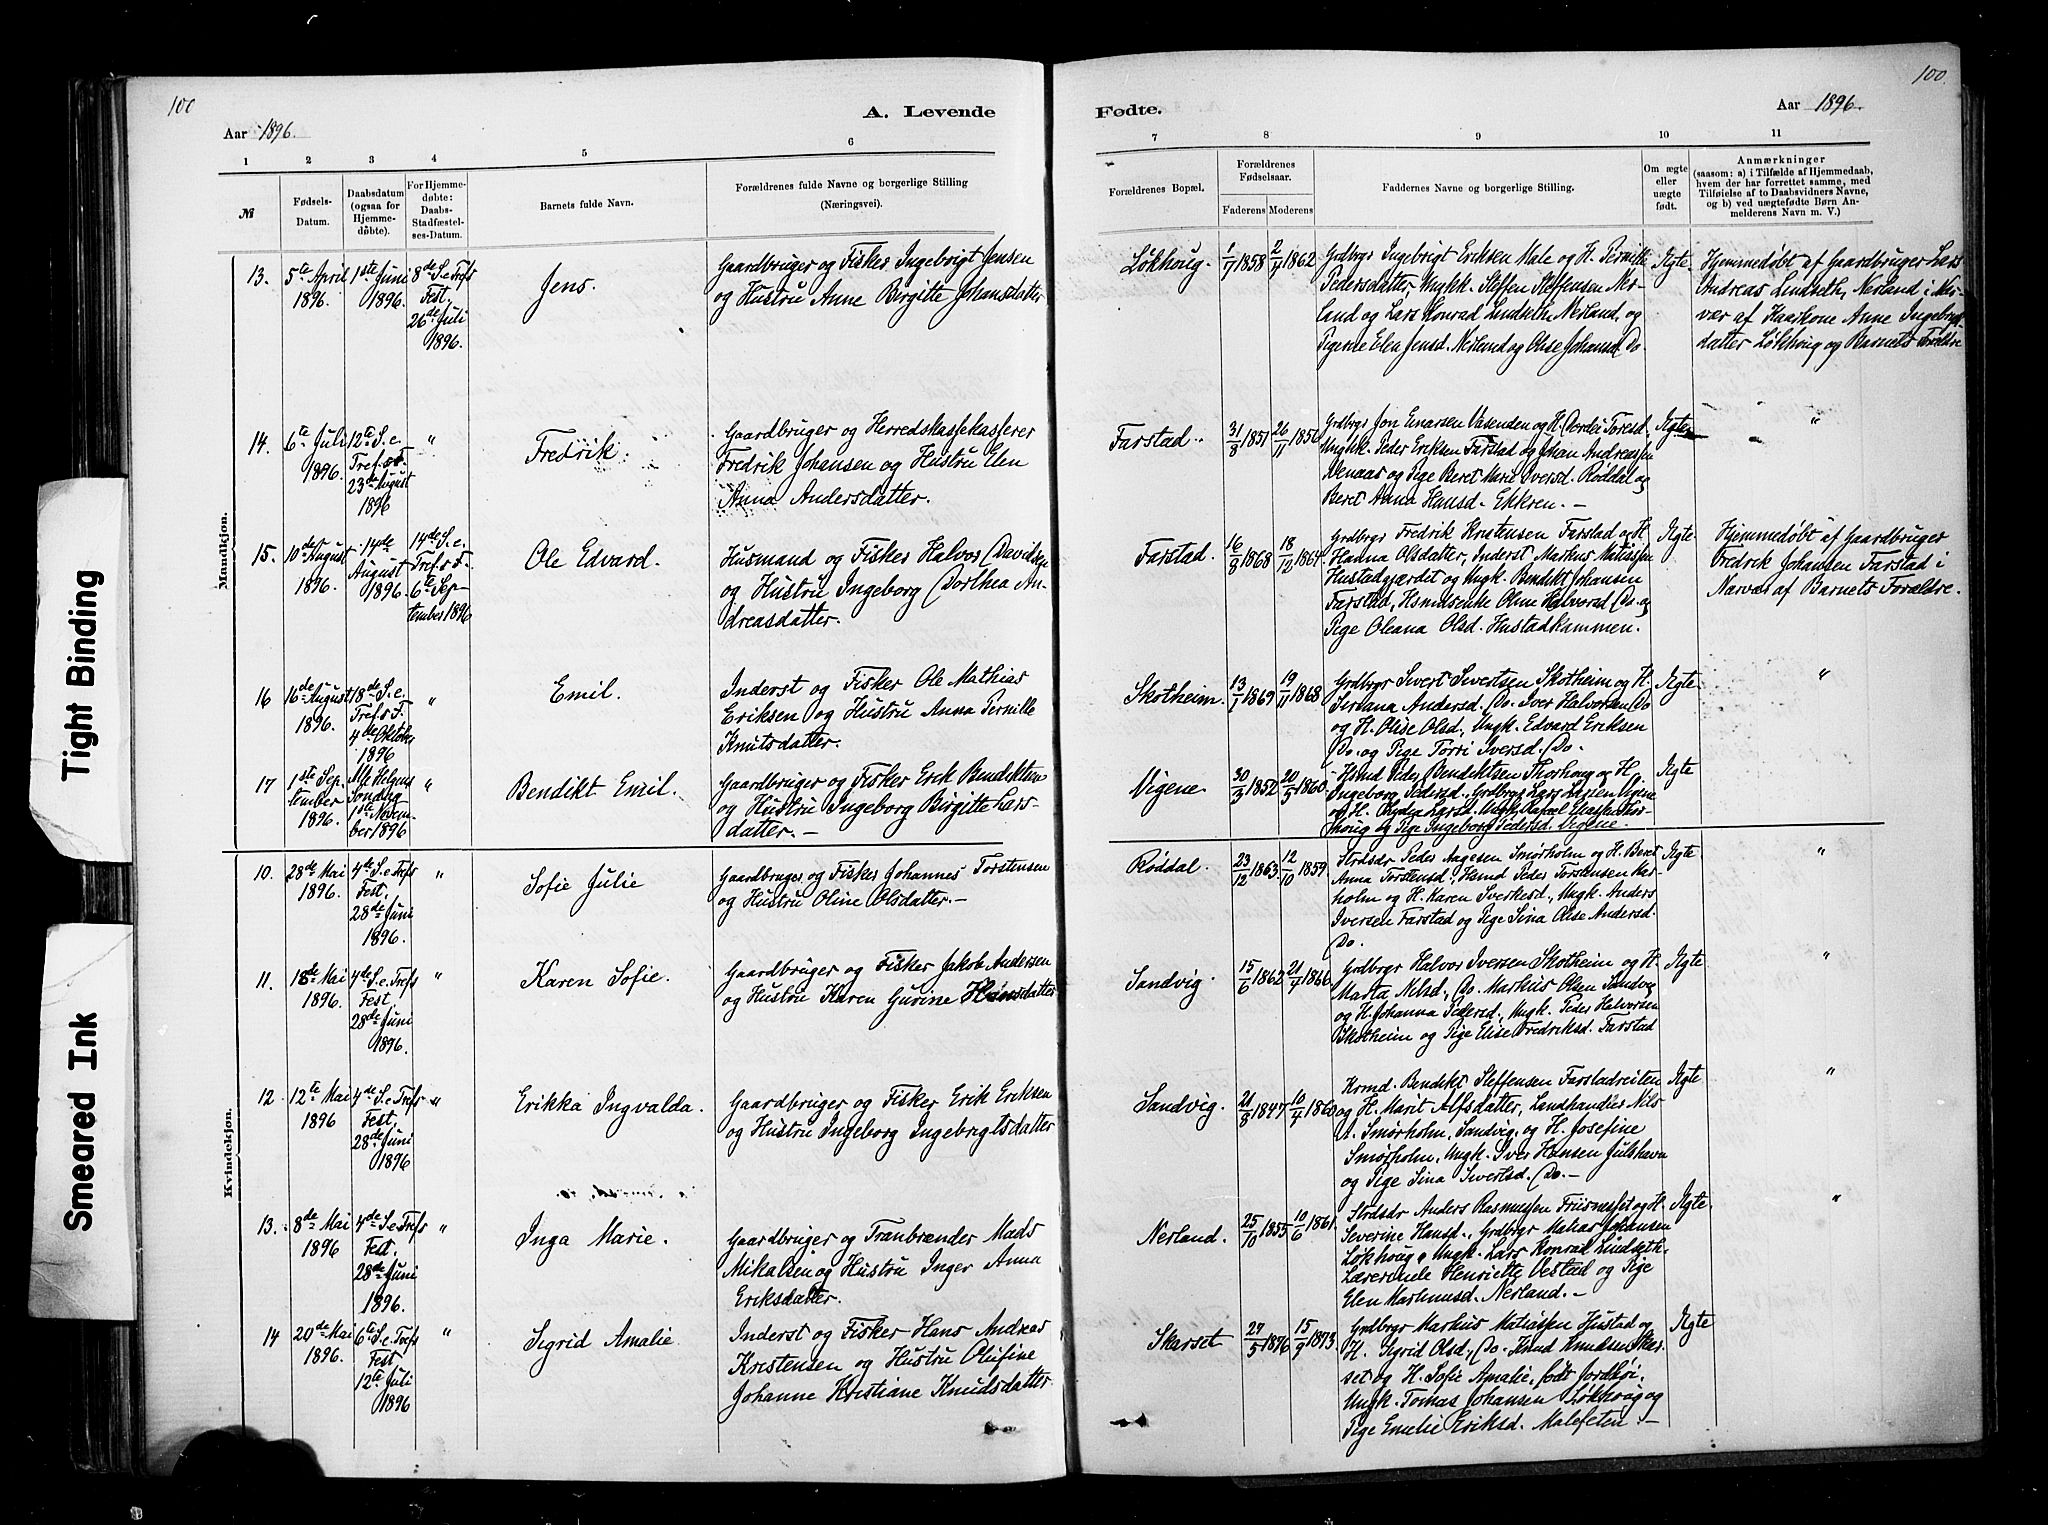 100
A. Levende
Aar 1896.
1 2 3 4 5 6
№
Fødsels-
Datum.
Daabsdatum
(ogsaa for
Hjemme-
døbte).
For Hjemme-
døbte:
Daabs-
Stadfæstel-
ses-Datum.
Barnets fulde Navn.
Forældrenes fulde Navne og borgerlige Stilling
(Næringsvei).
Mandkjøn.
13.
5te April
1896.
1ste Juni
1896.
8de S. e. Trefs
Fest.
26de Juli
1896.
Jens.
Gaardbruger og Fisker Ingebrigt Jensen
og Hustru Anne Birgitte Johansdatter
14.
6te Juli
1896.
12te S. e.
Tref. s F.
23de August
1896
"
Fredrik.
Gaardbruger og Herredskassekasserer
Fredrik Johansen og Hustru Elen
Anna Andersdatter.
15.
10de August
1896.
14de
August
1896.
14de S. e.
Tref. s F.
6te Sep-
tember 1896
Ole Edvard.
Husmand og Fisker Halvor Davidsen
og Hustru Ingeborg Dorthea An-
dreasdatter.
16
16de August
1896.
18de S. e.
Tref. s F.
4de Oktober
1896
"
Emil.
Inderst og Fisker Ole Mathias
Eriksen og Hustru Anna Pernille
Knutsdatter.
17
1ste Sep-
tember
1896.
Alle Helgens
Søndag
1ste Novem-
ber 1896
"
Bendikt Emil.
Gaardbruger og Fisker Erik Bendiktsen
og Hustru Ingeborg Birgitte Lars-
datter. —
Kvindekjøn.
10.
28de Mai
1896.
4de S. e. Trefs
Fest.
28de Juni
1896.
"
Sofie Julie
Gaardbruger og Fisker Johannes Torstensen
og Hustru Oline Olsdatter. —
11.
18de Mai
1896.
4de S. e. Trefs
Fest.
28de Juni
1896.
"
Karen Sofie.
Gaardbruger og Fisker Jakob Andersen
og Hustru Karen Gurine Hansdatter
12
12te Mai
1896
4de S. e. Trefs
Fest.
28de Juni
1896
"
Erikka Ingvalda.
Gaardbruger og Fisker Erik Eriksen
og Hustru Ingeborg Ingebrigtsdatter
13.
8de Mai
1896
4de S. e. Trefs
Fest.
28de Juni
1896.
"
Inga Marie.
Gaardbruger og Tranbrænder Mads
Mikalsen og Hustru Inger Anna
Eriksdatter.
14
20de Mai
1896.
6te S. e. Trefs
Fest
12te Juli
1896
"
Sigrid Amalie.
Inderst og Fisker Hans Andreas
Kristensen og Hustru Olufine
Johanne Kristiane Knudsdatter
100.
Fødte.
Aar 1896.
7 8 9 10 11
Forældrenes Bopæl.
Forældrenes
Fødselsaar.
Faderens Moderens
Faddernes Navne og borgerlige Stilling.
Om ægte
eller
uægte
født.
Anmærkninger
(saasom: a) i Tilfælde af Hjemmedaab,
hvem der har forrettet samme, med
Tilføielse af to Daabsvidners Navne,
og b) ved uægtefødte Børn An-
melderens Navn m. V.)
Løkhoug.
1/7 1858
2/4 1862
Grdbrgr Ingebrigt Eriksen Male og H. Pernille
Pedersdatter, Ungk. Steffen Steffensen Ner-
land og Lars Konrad Lindseth, Nerland, og
Pigerne Elen Jensd. Nerland og Olise Johansd. Do.
Ægte.
Hjemmedøbt af Gaardbruger Lars
Andreas Lindseth, Nerland i Nær-
vær af Haarkone Anne Ingebrigts-
datter Løkhoug og Barnets Forældre
Farstad.
31/8 1851
26/11 1856
Grdbrgr Jon Enarsen Vasenden og H. Dordei Toresd.
Ungkk. Peder Eriksen Farstad og Johan Andreassen
og Pige Beret Marie Iversd. Røddal og
Beret Anna Hansd. Ekkren. —
Ægte
"
Farstad.
16/8 1868
18/12 1864
Grdbrgr Fredrik Kristensen Farstad og H.
Hanna Olsdatter, Inderst Markus Matiassen
Hustadgjærdet og Ungk. Bendikt Johansen
Farstad, Hsmdsenke Oline Halvorsd. Do. og
Pige Oleana Olsd. Hustadkammen.
Ægte.
Hjemmedøbt af Gaardbruger
Fredrik Johansen Farstad i
Nærvær af Barnets Forældre.
Skotheim.
13/1 1869
19/11 1868
Grdbrgr Sivert Sivertsen Skotheim og H.
Seriana Andersd. Do. Iver Halvorsen Do
og H. Olise Olsd., Ungk. Edvard Eriksen
Do. og Pige Torri Iversd. Do.
Ægte.
"
Vigene.
30/3 1852
20/5 1860.
Hsmd Peder Bendiktsen Thorhoug og H.
Ingeborg Pedersd., Grdbrgr Lars Larsen Vigene
og H. Larsd. Ungk. Eliassen Tor-
houg og Pige Ingeborg Pedersd. Vigene.
Ægte
Røddal.
23/12 1863.
12/10 1859
Strdsdr Peder Aagesen Smørholm og H. Beret
Anna Torstensd., Hsmd Peder Torstensen Kar-
holm og H. Karen Sverkesd., Ungk. Anders
Iversen Farstad og Pige Sina Olise Andersd.
Do.
Ægte.
"
Sandvig.
15/6 1862
21/4 1866
Grdbrgr Halvor Iversen Skotheim og H.
Marta Nilsd., Do. Markus Olsen Sandvig
og H. Johanna Pedersd., Ungk. Peder Halvorsen
Skotheim og Pige Elise Fredriksd. Farstad
Ægte
"
Sandvig.
21/8 1847
10/4 1860
Krmd. Bendikt Steffensen Farstadreiten
og H. Marit Alfsdatter, Landhandler Nils
A. Smørholm, Sandvig, og H. Josefine
Smørholm, Ungk. Iver Hansen Julshavn
og Pige Sina Sivertsd. Do. —
Ægte
"
Nerland.
25/10 1855
10/6 1861.
Strdsdr Anders Rasmussen Friisneset og H.
Severine Hansd., Grdbrgr Matias Johansen
Løkhoug, Ungk. Lars Konrad Lindseth,
Lærerinde Henriette Vestad og Pige
Elen Martinusd. Nerland. —
Ægte.
"
Skarset
27/5 1876
15/9 1873.
Grdbrgr Markus Matiassen Hustad og
H. Sigrid Olsd., Do. Knud Knudsen Skar-
set og H. Sofie Amalie, født Jordhøi.
Ungk. Tomas Johansen Løkhoug og
Pige Emelie Eriksd. Malefeten —
Ægte
Tight Binding
Smeared Ink